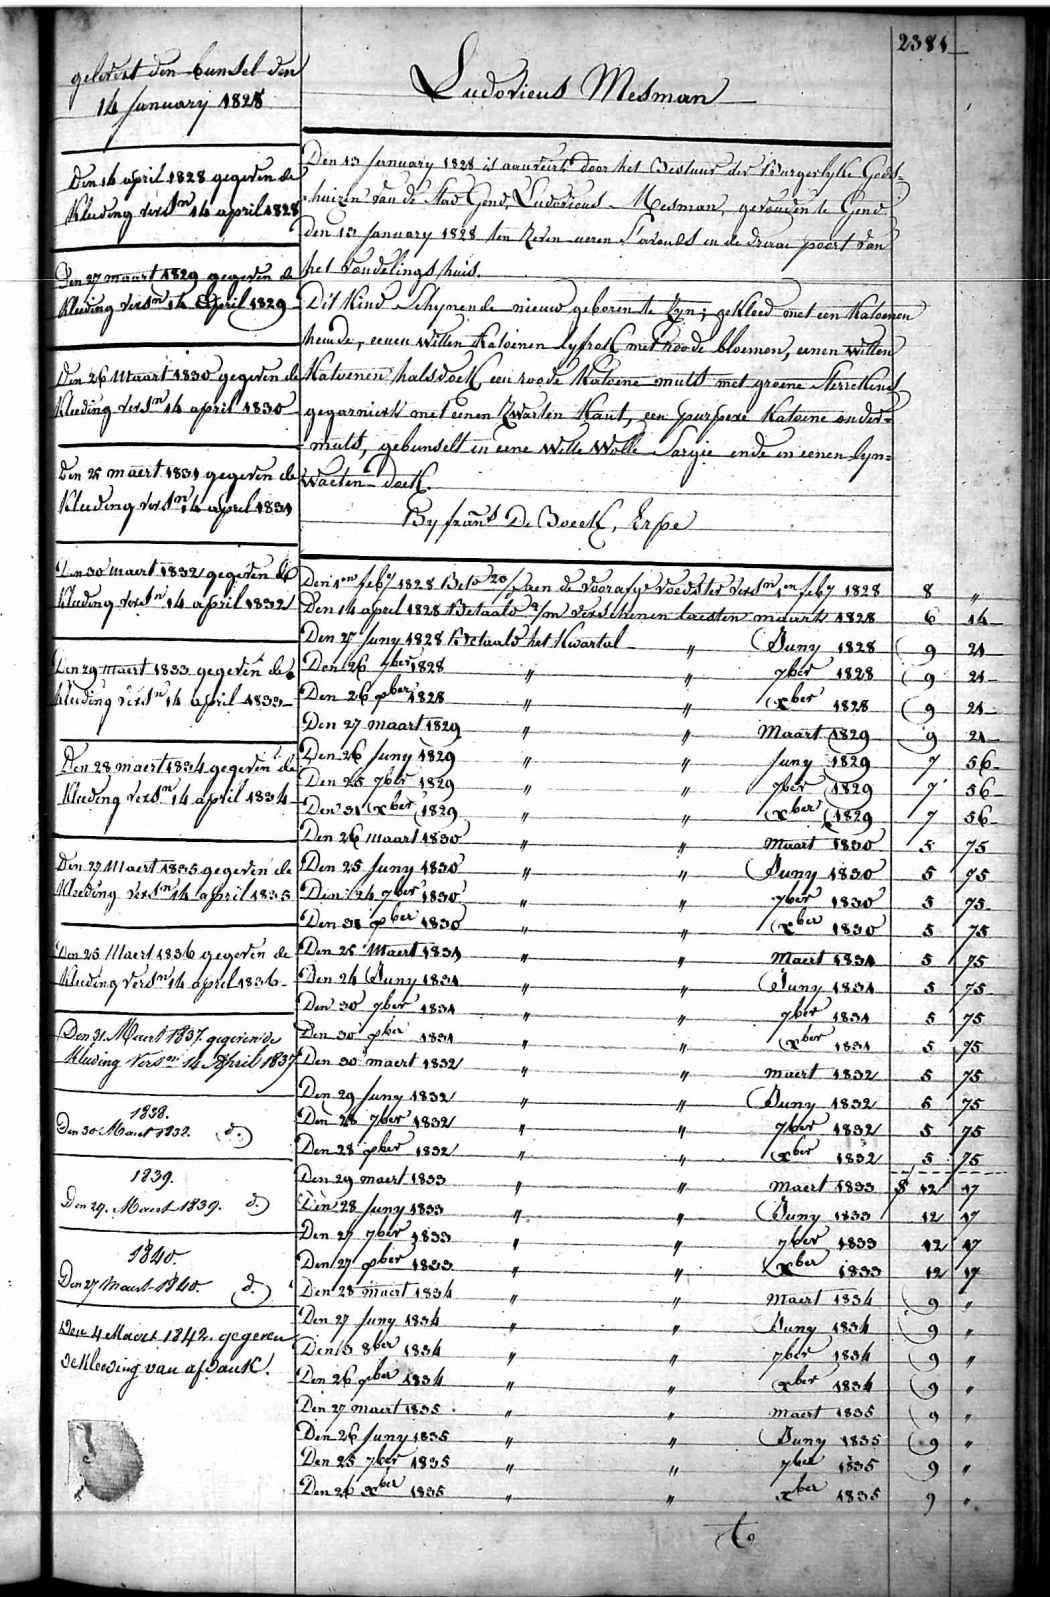 2381
Ludovicus Mesman
gelevert den bunsel den
14 January 1828
Den 14 april 1828 gegeven de
kleeding vers.n 14 april 1828
Den 27 maart 1829 gegeven de
kleeding vers.n 14 April 1829
Den 26 Maart 1830 gegeven de
kleeding vers.n 14 april 1830
Den 25 maert 1831 gegeven de
kleeding vers.n 14 april 1831
Den 30 maert 1832 gegeven de
kleeding vers.n 14 april 1832
Den 29 maert 1833 gegeven de
kleeding vers.n 14 april 1833
Den 28 maert 1834 gegeven de
kleeding vers.n 14 april 1834
Den 27 Maert 1835 gegeven de
kleeding vers.n 14 april 1835
Den 25 Maert 1836 gegeven de
kleeding vers.n 14 april 1836
Den 31. Maert 1837. gegeven de
kleeding vers.en 14 April 1837
1838.
Den 30 Maert 1838. d.o
1839.
Den 29. Maert 1839. d.o
1840.
Den 27 Maert 1840. d.o
Den 4 Maert 1842. gegeven
de kleeding van afdank.
Den 13 January 1828 is aanveird door het Bestuur der Burgerlyke Gods-
huizen van de Stad Gend, Ludovicus Mesman, gevonden te Gend
den 13 January 1828 ten zeven ueren s'avonds in de draai poort van
het vondelingshuis.
Dit kind schynende nieuw geboren te zyn; gekleed met een katoenen
hemde, eenen witten katoenen lyfrok met roode bloemen, eenen witten
katoenen halsdoek een roode katoene muts met groene sterrekens
gegarniert met eenen zwarten kant, een purpere katoene onder=
muts, gebunselt in eene witte wolle sargie ende in eenen lyn=
waeten doek.
By frans De Boeck, Erpe
Den 1en feb.y 1828 Bet.d aen de voorafg.e voedster vers.n 1en feb.y 1828 8 "
Den 14 april 1828 Betaald verschenen laesten maart 1828 6 14
Den 27 Juny 1828 Betaald het kwartal " Juny 1828 9 21
Den 26 7ber 1828 " " 7ber 1828 9 21
Den 26 xber 1828 " xber 1828 9 21
Den 27 maart 1829 " " Maart 1829 9 21
Den 26 Juny 1829 " " Juny 1829 7 56
Den 25 7ber 1829 " " 7ber 1829 7 56
Den 31 xber 1829 " " xber 1829 7 56
Den 26 maart 1830 " " Maart 1830 5 75
Den 25 Juny 1830 " " Juny 1830 5 75
Den 24 7ber 1830 " " 7ber 1830 5 75
Den 31 xber 1830 " " xber 1830 5 75
Den 25 Maert 1831 " " Maert 1831 5 75
Den 24 Juny 1831 " " Juny 1831 5 75
Den 30 7ber 1831 " " 7ber 1831 5 75
Den 30 xber 1831 " " xber 1831 5 75
Den 30 maert 1832 " " maert 1832 5 75
Den 29 Juny 1832 " " Juny 1832 5 75
Den 28 7ber 1832 " " 7ber 1832 5 75
Den 28 xber 1832 " " xber 1832 5 75
Den 29 maert 1833 " " Maert 1833 12 17
Den 28 Juny 1833 " " Juny 1833 12 17
Den 27 7ber 1833 " " 7ber 1833 12 17
Den 27 xber 1833 " " xber 1833 12 17
Den 28 maert 1834 " " Maert 1834 9 "
Den 27 Juny 1834 " " Juny 1834 9 "
Den 3 8ber 1834 " " 7ber 1834 9 "
Den 26 xber 1834 " " xber 1834 9 "
Den 27 maert 1835 " " maert 1835 9 "
Den 26 Juny 1835 " " Juny 1835 9 "
Den 25 7ber 1835 " " 7ber 1835 9 "
Den 26 xber 1835 " " xber 1835 9 "